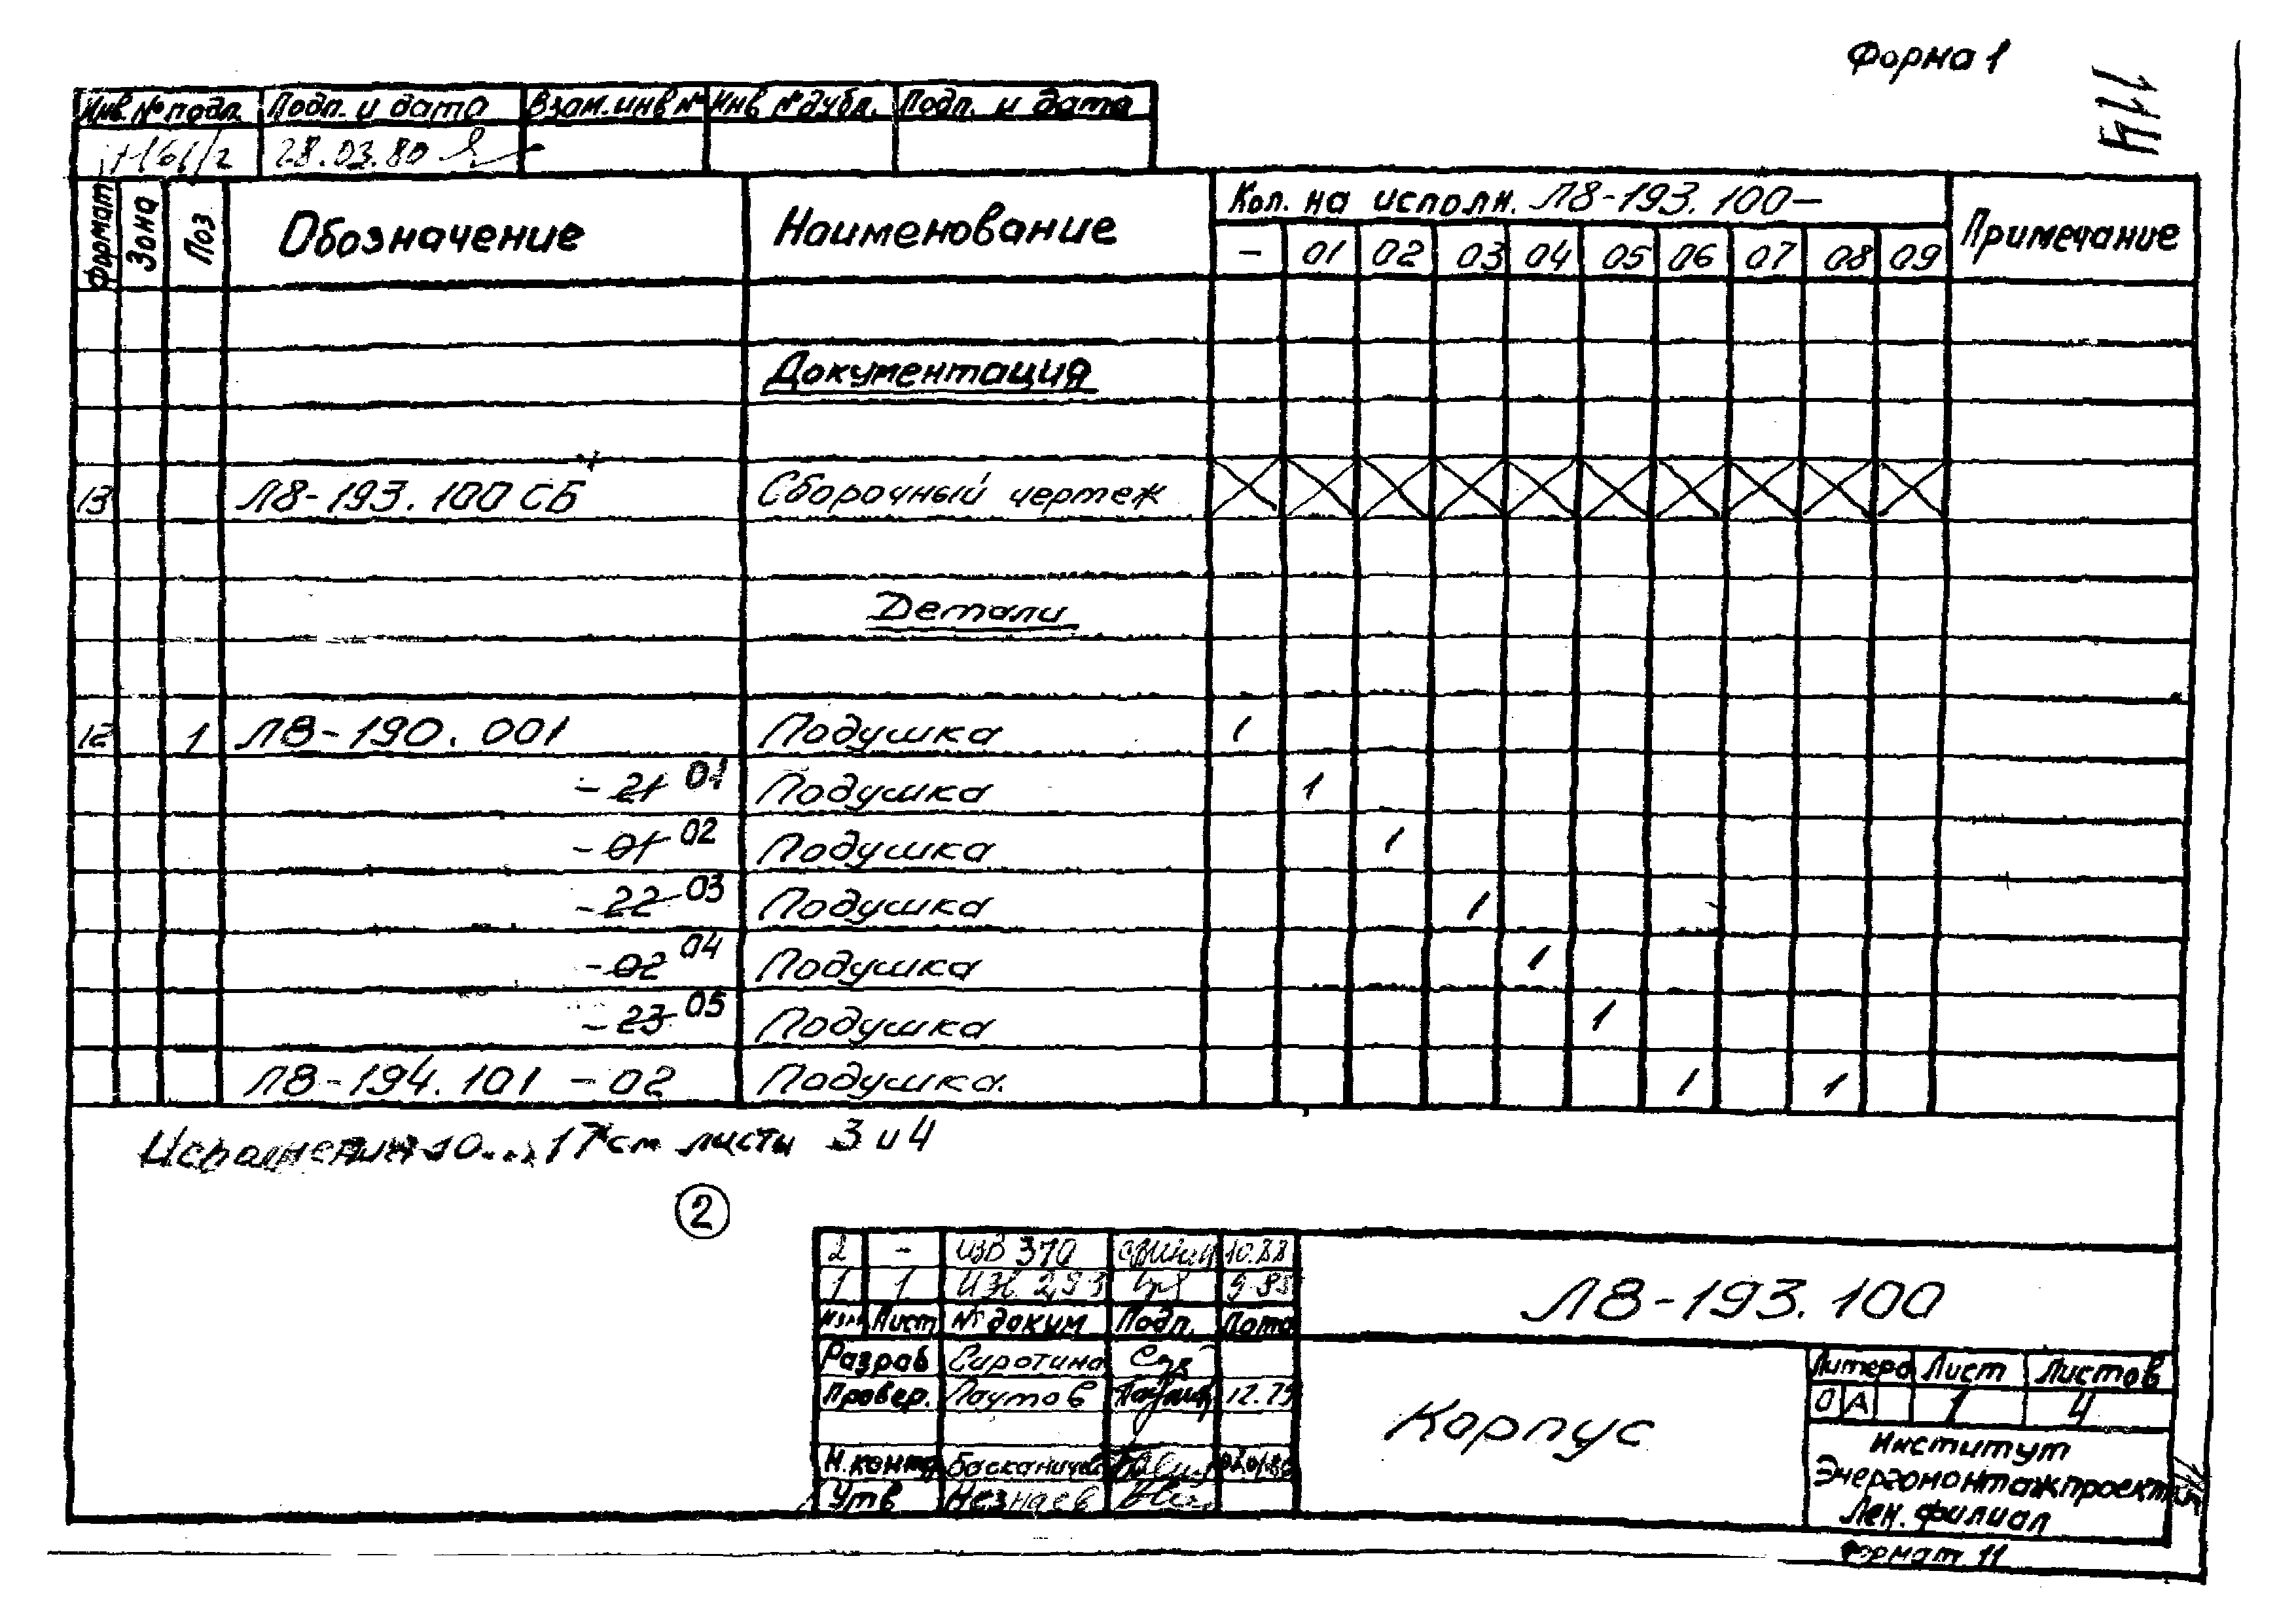 Форма 1
114
Инв. № подл. Подп. и дата Взам. инв № Инв № дубл. Подп. и дата
28.03.80
Формат Зона Поз Обозначение Наименование Кол. на исполн. Л8-193.100- Примечание
- 01 02 03 04 05 06 07 08 09
Документация
13 Л8-193.100 СБ Сборочный чертеж
Детали
12 1 Л8-190.001 Подушка 1
-21 01 Подушка 1
-01 02 Подушка 1
-22 03 Подушка 1
-02 04 Подушка 1
-23 05 Подушка 1
Л8-194.101 -02 Подушка. 1 1
Исполнения 10...17 см листы 3 и 4
2
2 - изв 370 10.88
1 1 изв. 293
Изм Лист № докум Подп. Дата
Л8-193.100
Разраб Сиротина
Провер. Паутов 12.79
Н. контр
Утв Незнаев
Корпус
Литера Лист Листов
О А 1 4
Институт
Энергомонтажпроект
Лен. филиал
Формат 11